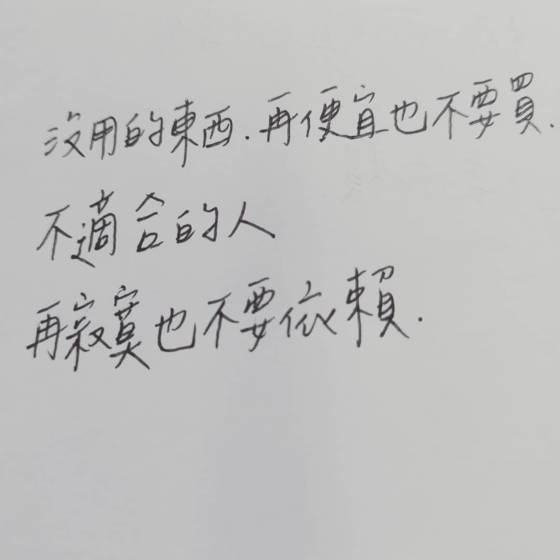 沒用的東西.再便宜也不要買.
不適合的人
再寂寞也不要依賴.